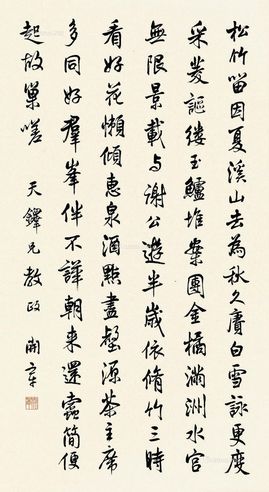 松竹留因夏溪山去為秋久賡白雪詠更度
采菱謳縷玉鱸堆案團金橘滿洲水宮
無限景載与謝公遊半歲依脩竹三時
看好花懶傾惠泉酒點盡壑源茶主席
多同好羣峯伴不譁朝来還蠹簡便
起故巢嗟 天鐸兄教政 開